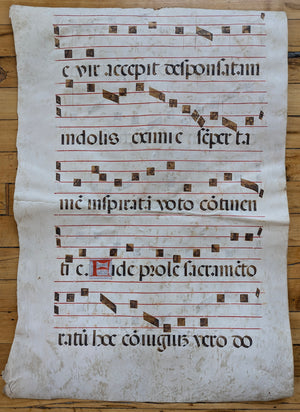 e vir accepit desponsatam
indolis eximi e sẽper ta
mẽ inspirati voto cõtinen
ti e. Fide prole sacramẽto
ratũ hoc cõiugiũ vero do